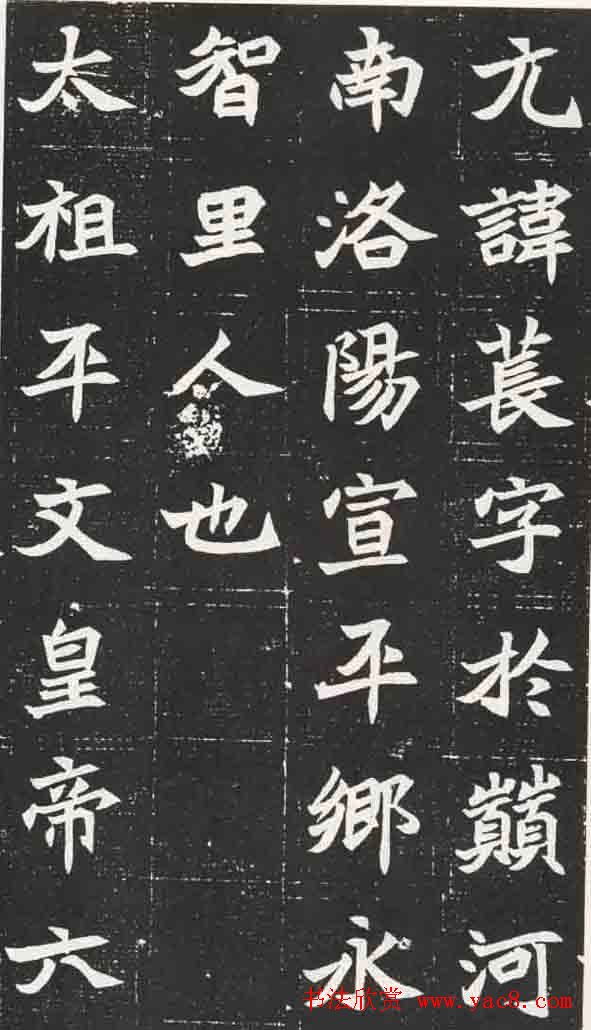 亢諱萇字於巔河
南洛陽宣平鄉永
智里人也
太祖平文皇帝六
书法欣赏 www.yac8.com